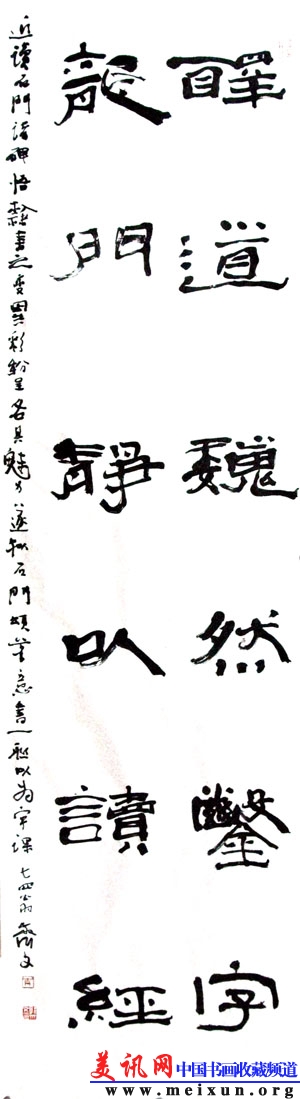 醳道魏然鑿字
龍門靜以讀經
近讀石門諸碑悟隸書之變異彩紛呈各具魅力遂擬石門頌筆意書一聯以為字課 七四翁 齊文
美讯网 中国书画收藏频道
www.meixun.org